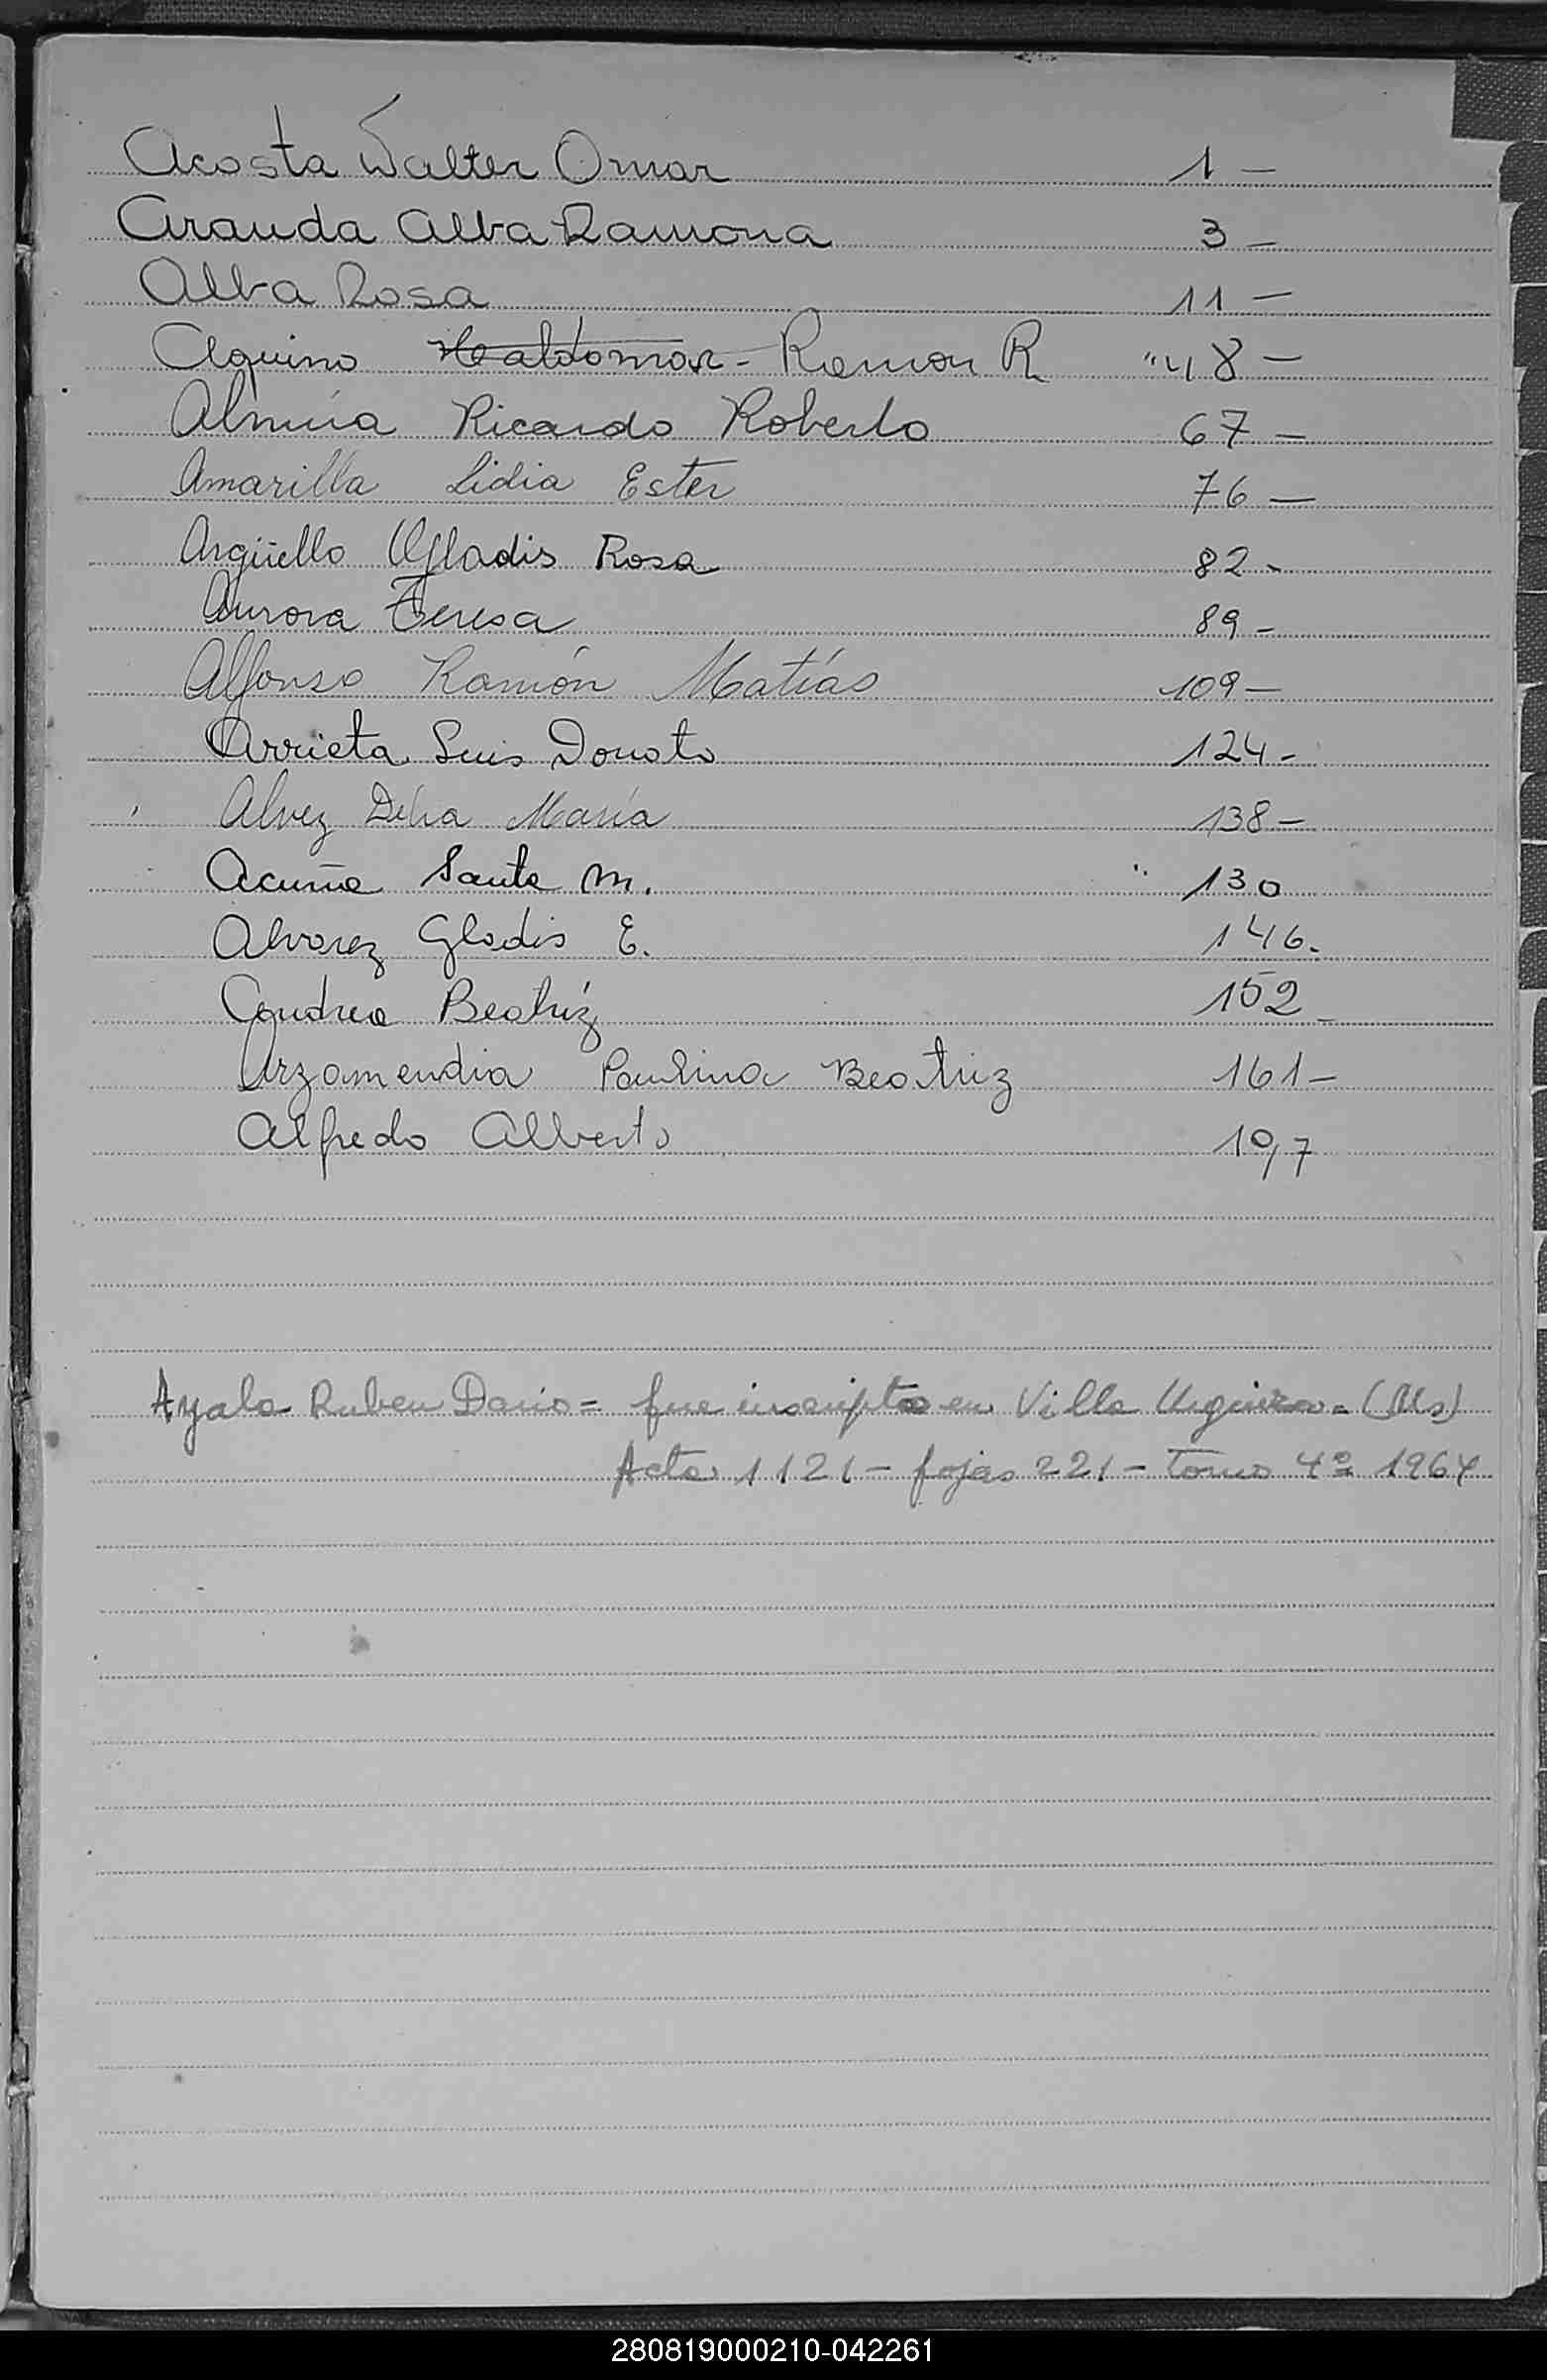 Acosta Walter Omar 1 —
Aranda Alba Ramona 3 —
Alba Rosa 11 —
Aquino Ramon R "48 —
Almúa Ricardo Roberto 67 —
Amarilla Lidia Ester 76 —
Argüello Gladis Rosa 82 -
Aurora Teresa 89 -
Alfonso Ramón Matías 109 —
Arrieta Luis Donato 124 -
Alvez Délia María 138 —
Acuña Santa M. " 130
Alvarez Gladis E. 146 -
Andrea Beatríz 152 -
Arzamendia Paulina Beatriz 161 -
Alfredo Alberto 197
Ayala Ruben Dario = fue inscripto en Villa
Acta 1121 - fojas 221 - Tomo 4º 1964
280819000210-042261